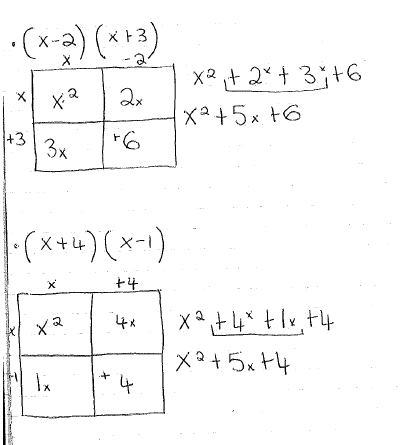 • (x-2) (x+3)
x -2
x x² 2x
+3 3x +6
x² + 2x + 3x + 6
x² + 5x + 6
• (x+4) (x-1)
x +4
x x² 4x
-1 1x +4
x² + 4x + 1x + 4
x² + 5x + 4